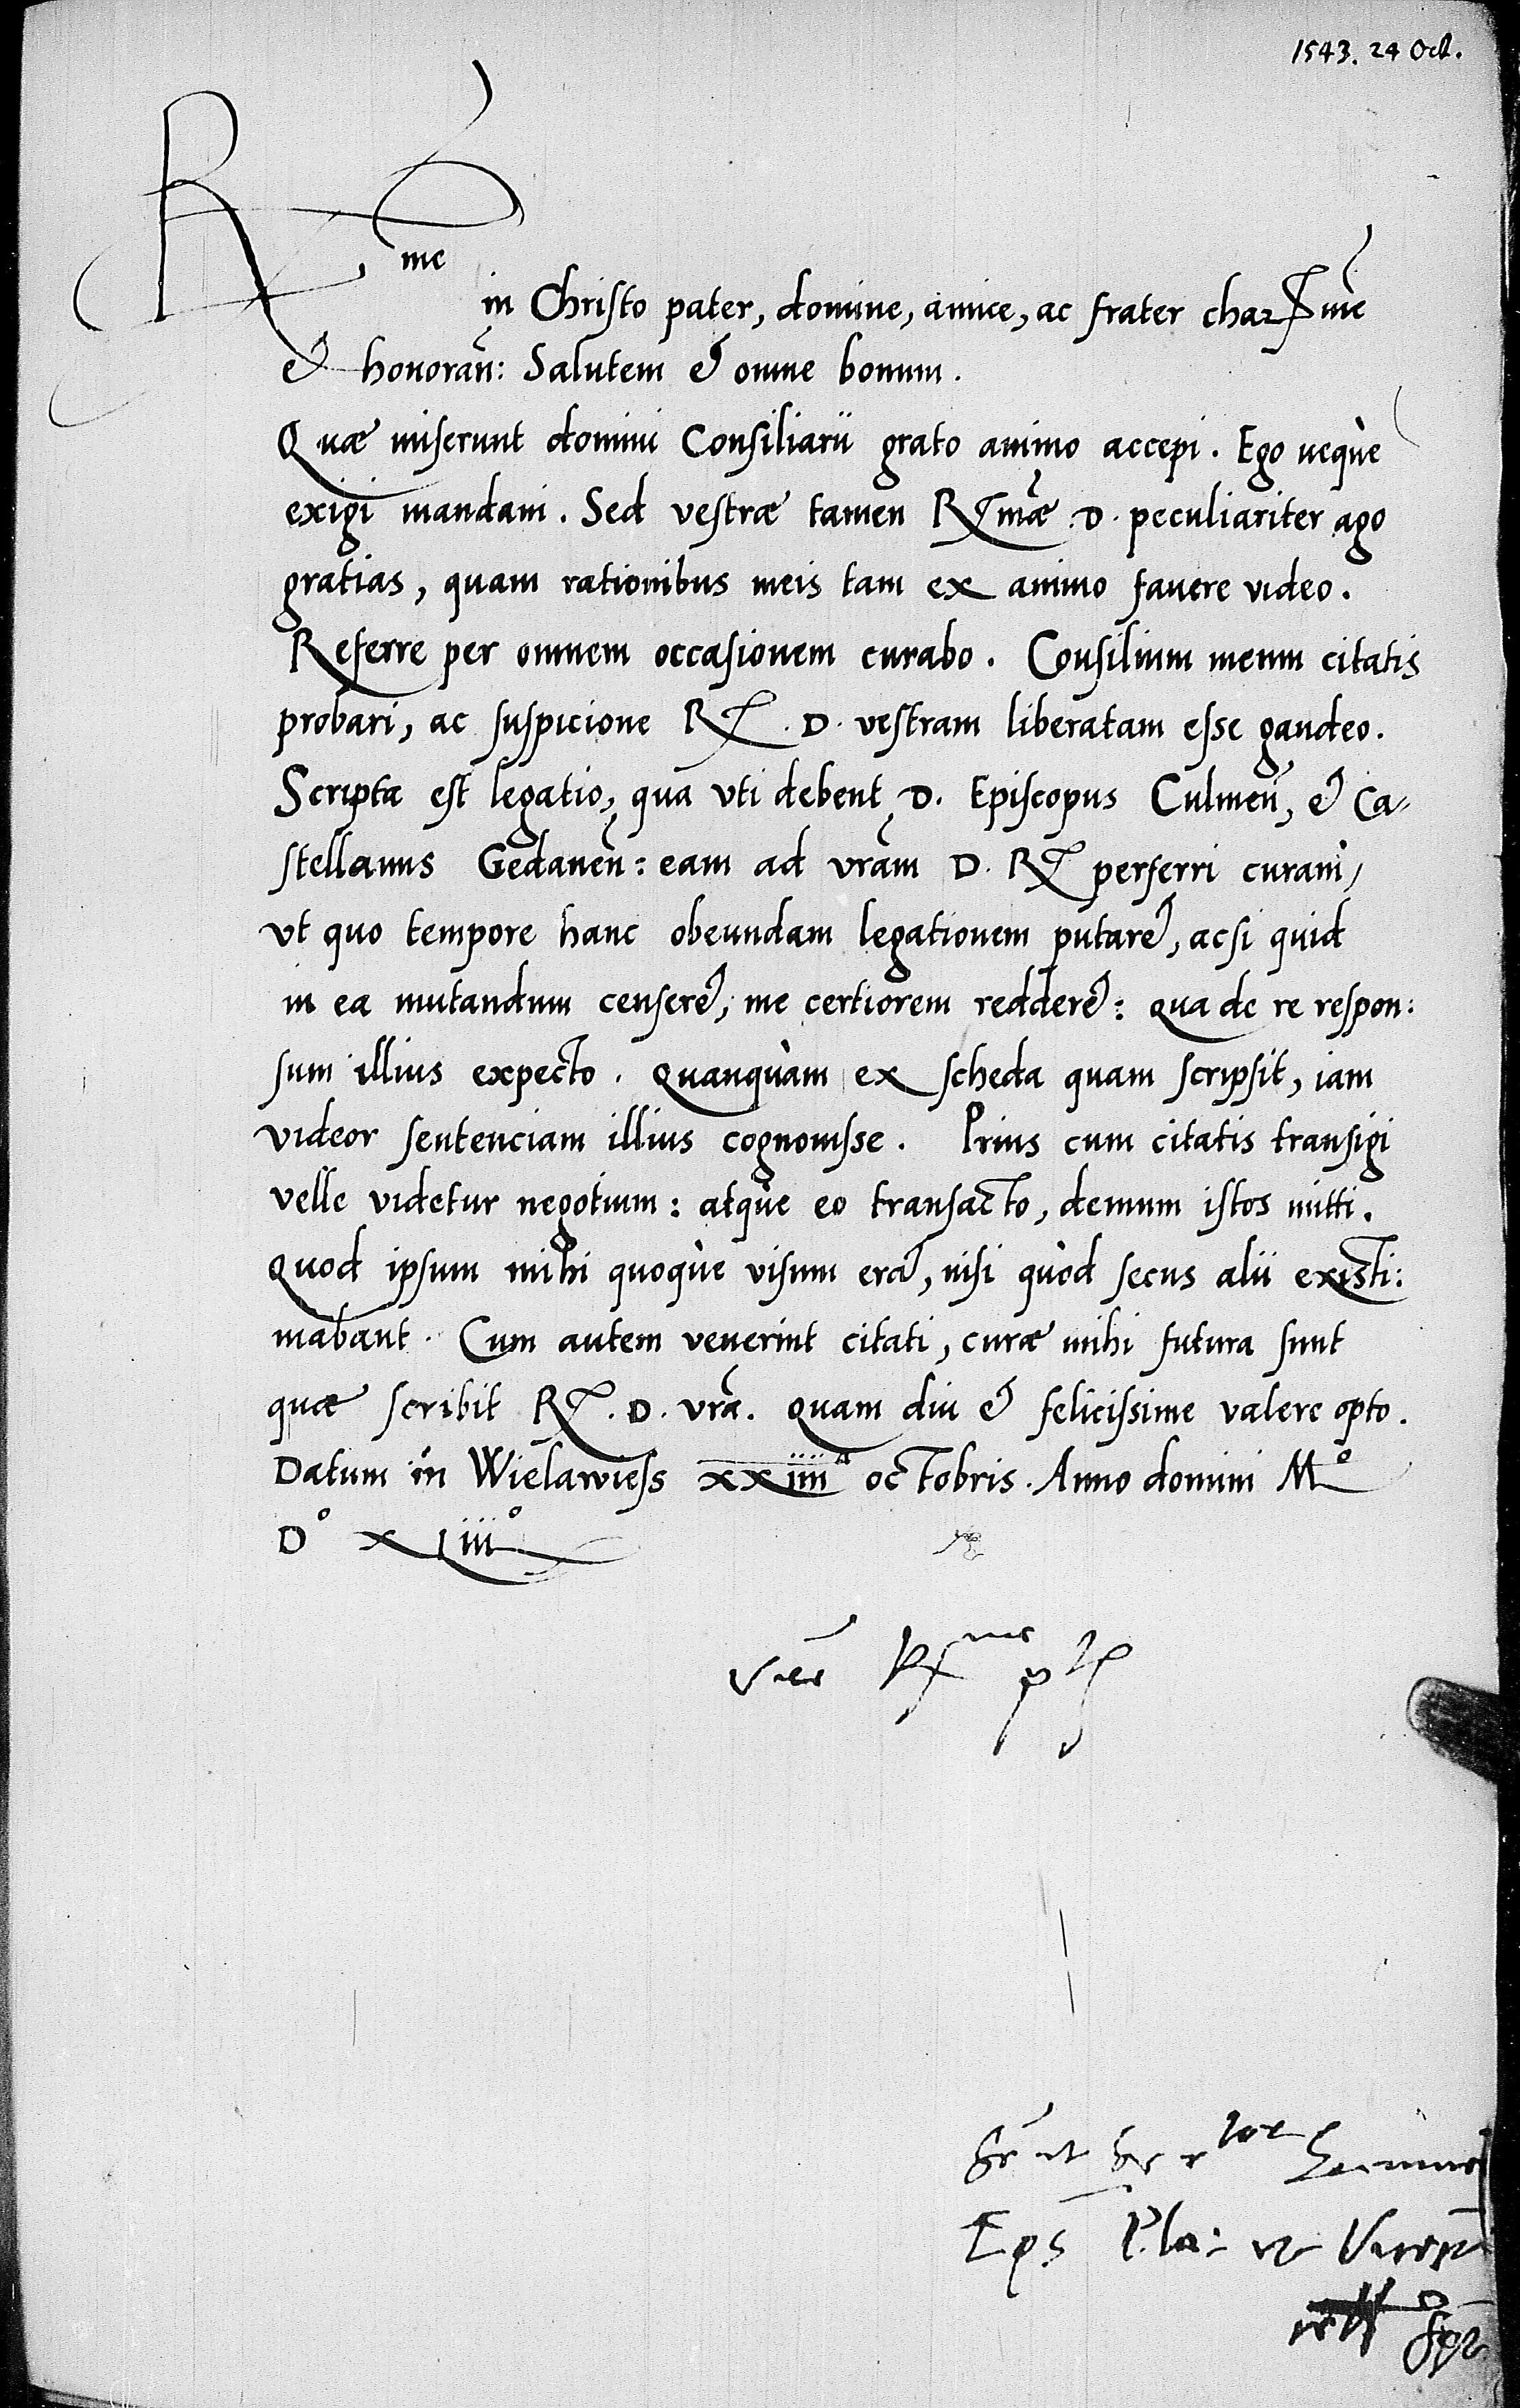 1543. 24 Oct.
R me
in Christo pater, domine, amice, ac frater charssme
et honoran̄: Salutem et omne bonum.
Quæ miserunt domini Consiliarii grato animo accepi. Ego neque
exigi mandaui. Sed vestræ tamen R mæ D. peculiariter ago
gratias, quam rationibus meis tam ex animo fauere video.
Referre per omnem occasionem curabo. Consilium meum citatis
probari, ac suspicione R. D. vestram liberatam esse gaudeo.
Scripta est legatio, qua vti debent D. Episcopus Culmen̄, et Ca-
stellanus Gedanen̄: eam ad vrām D. R perferri curaui,
vt quo tempore hanc obeundam legationem putaret, ac si quid
in ea mutandum censeret, me certiorem redderet: qua de re respon:
sum illius expecto. Quanquàm ex scheda quam scripsit, iam
videor sentenciam illius cognouisse. Prius cum citatis transigi
velle videtur negotium: atque eo transacto, demum istos mitti.
Quod ipsum mihi quoque visum erat, nisi quòd secus alii existi:
mabant. Cum autem venerint citati, curæ mihi futura sunt
quæ scribit R. D. vrā. Quam diu et felicissime valere opto.
Datum in Wielawiess xxiiii a octobris. Anno domini M°
D° xLiii°
R me
Eps Plo: